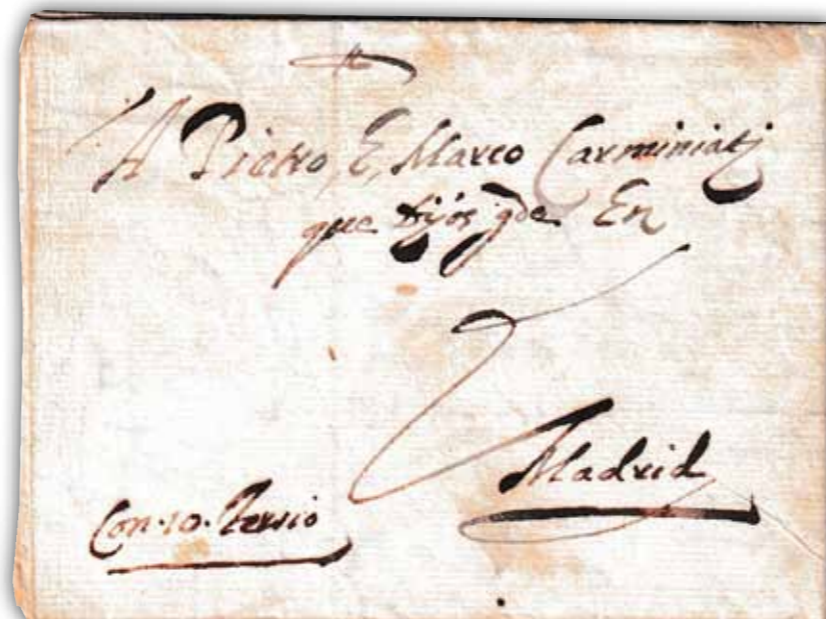 A Pietro, E, Marco Carminiatj
que Djos gde En
Madrid
Con·10·